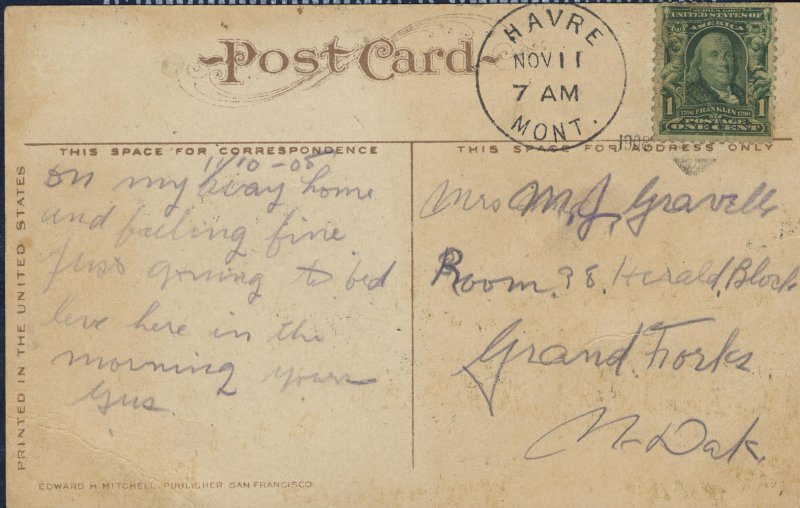 Post Card
HAVRE
NOV 11
7 AM
MONT.
1908
UNITED STATES
AMERICA
1 1
FRANKLIN
POSTAGE
ONE CENT
THIS SPACE FOR CORRESPONDENCE
THIS SPACE FOR ADDRESS ONLY
PRINTED IN THE UNITED STATES
11/10-08
on my way home
and feeling fine
just going to bed
leve here in the
morning yours
Gus.
Mrs M.J. Gravelle
Room. 38. Herald, Block
Grand Forks
N-Dak.
EDWARD H. MITCHELL, PUBLISHER SAN FRANCISCO.